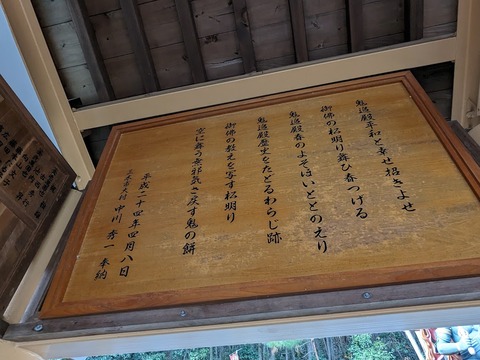 鬼遊殿平和と幸せ招きよせ
御佛の松明り舞ひ春つげる
鬼遊殿春のよそほいととのえり
鬼遊殿歴史をたどるわらじ跡
御佛の教えを写す松明り
空に舞う無邪気さ戻す鬼の餅
平成二十四年四月八日
中川秀一奉納